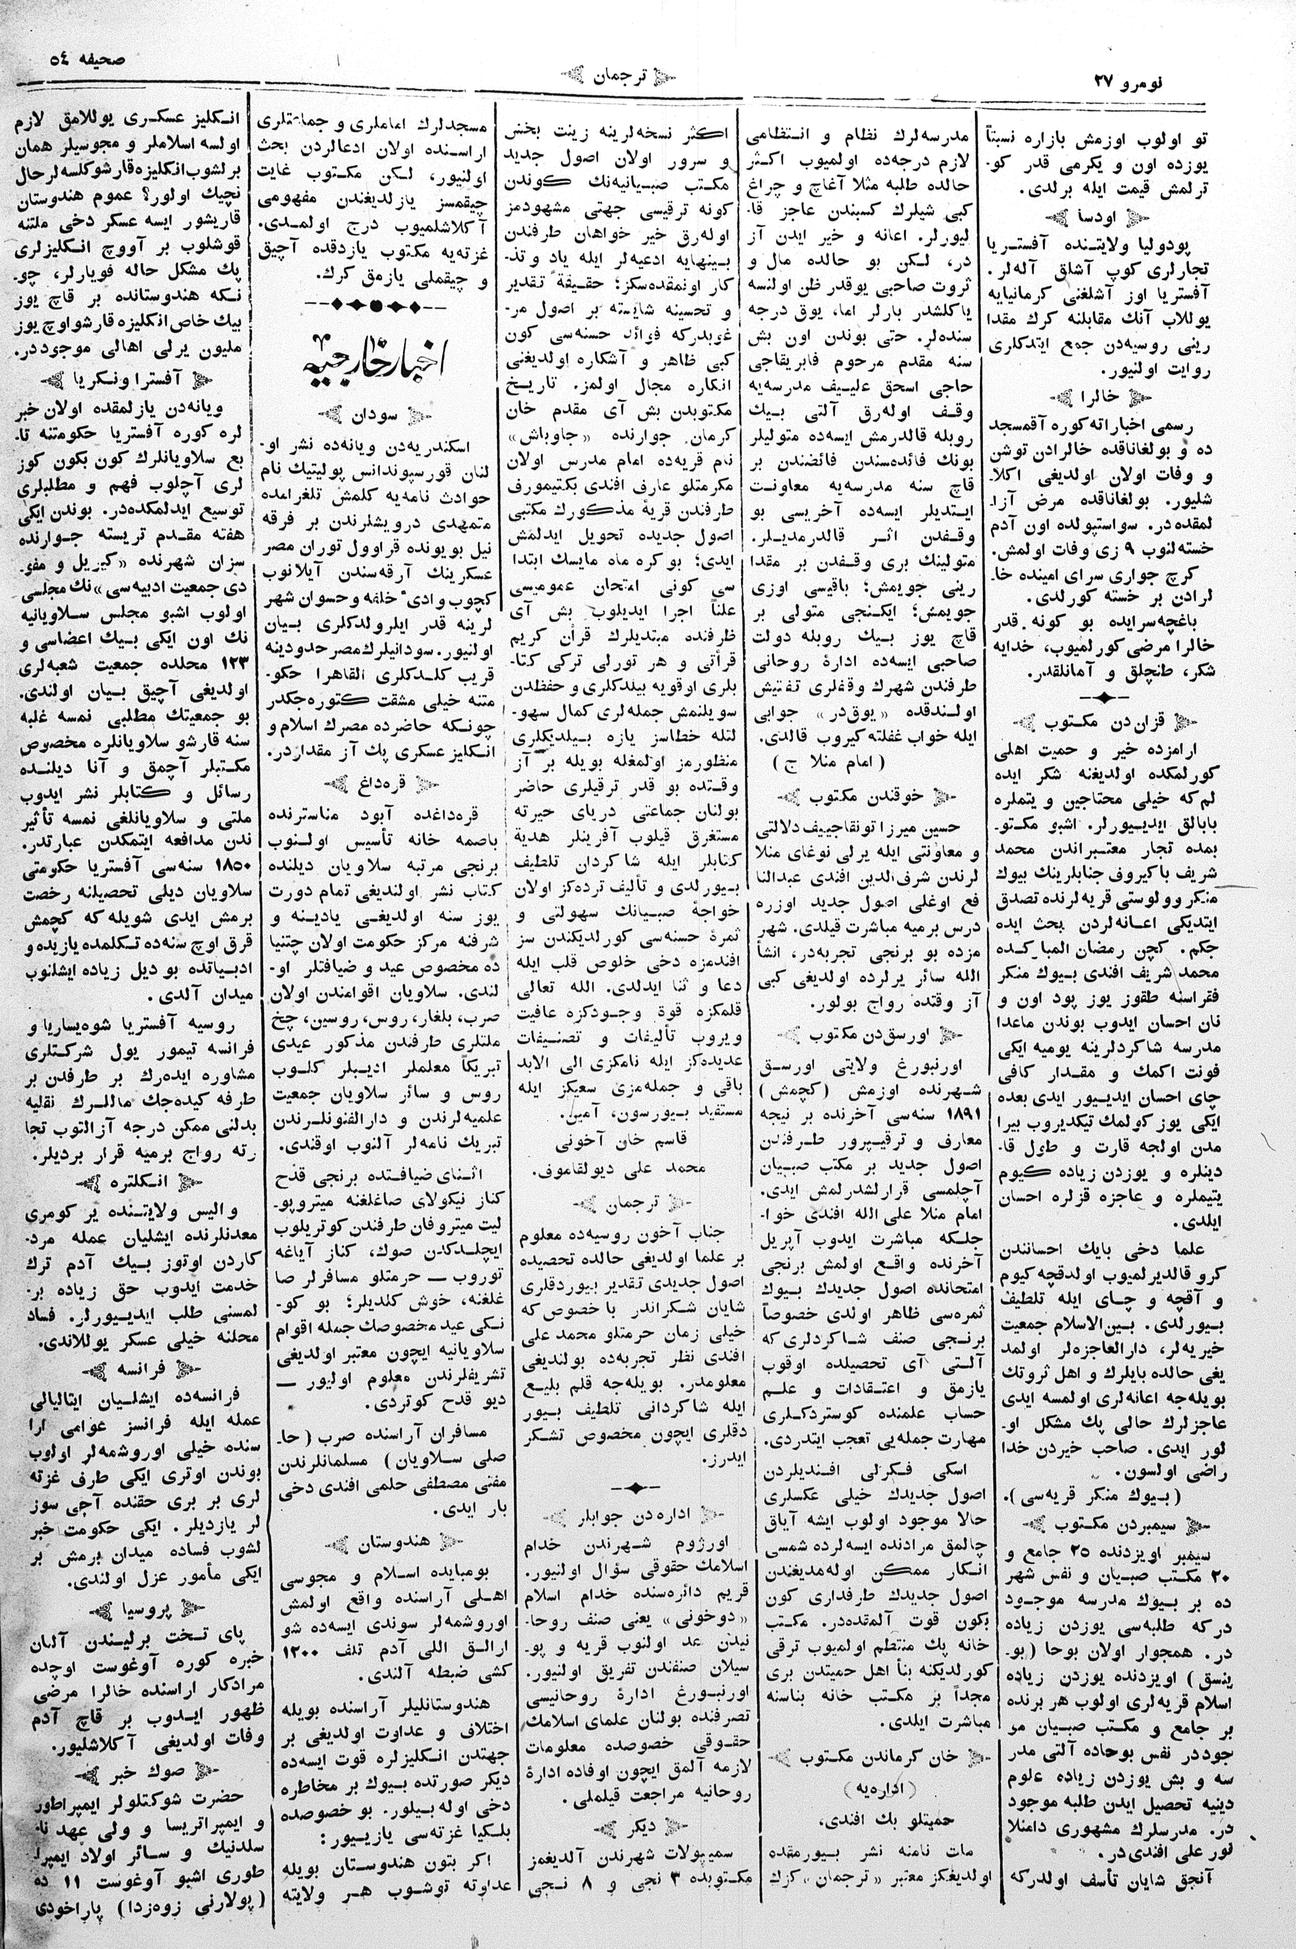 نومرو ٢٧
ترجمان
صحیفه ٥٤
تو اولوب اوزمش بازاره نسبتاً
یوزده اون و یکرمی قدر کو-
ترلمش قیمت ایله برلدی.
اودسا
پودولیا ولایتنده آفستریا
تجارلری کوپ آشلق آله‌لر.
آفستریا اوز آشلغنی کرمانیایه
یوللاب آنك مقابلنه کرك مقدا
رینی روسیه‌دن جمع ایتدکلری
روایت اولنیور.
خالرا
رسمی اخباراته کوره آقمسجد
ده و بولغاناقده خالرادن توشن
و وفات اولان اولدیغی اکلا-
شلیور. بولغاناقده مرض آزا-
لمقده‌در. سواستپولده اون آدم
خسته‌لنوب ٩ زی وفات اولمش.
کرچ جواری سرای امینده خا-
لرادن بر خسته کورلدی.
باغچه‌سرایده بو کونه قدر
خالرا مرضی کورلمیوب، خدایه
شکر، طنچلق و آمانلقدر.
قزان‌دن مکتوب
ارامزده خیر و حمیت اهلی
کورلمکده اولدیغنه شکر ایده
لم که خیلی محتاجین و یتملره
بابالق ایدییورلر. اشبو مکتو-
بمده تجار معتبراندن محمد
شریف باکیروف جنابلرینك بیوك
منکر وولوستی قریه‌لرنده تصدق
ایتدیکی اعانه‌لردن بحث ایده
جکم. کچن رمضان المبارکده
محمد شریف افندی بیوك منکر
فقراسنه طقوز یوز پود اون و
نان احسان ایدوب بوندن ماعدا
مدرسه شاکردلرینه یومیه ایکی
فونت اکمك و مقدار کافی
چای احسان ایدییور ایدی بعده
ایکی یوز کولمك تیکدیروب بیرا
مدن اولجه قارت و طول قا-
دینلره و یوزدن زیاده کیوم
یتیملره و عاجزه قزلره احسان
ایلدی.
علما دخی بایك احسانندن
کرو قالدیرلمیوب اولدقچه کیوم
و آقچه و چای ایله تلطیف
بیورلدی. بین‌الاسلام جمعیت
خیریه‌لر، دارالعاجزه‌لر اولمد
یغی حالده بایلرك و اهل ثروتك
بویله‌جه اعانه‌لری اولمسه ایدی
عاجزلرك حالی پك مشکل او-
لور ایدی. صاحب خیردن خدا
راضی اولسون.
(بیوك منکر قریه‌سی).
سیمبردن مکتوب
سیمبر اویزدنده ٢٥ جامع و
٢٠ مکتب صبیان و نفس شهر
ده بر بیوك مدرسه موجود
درکه طلبه‌سی یوزدن زیاده
در. همجوار اولان بوحا (بو-
ینسق) اویزدنده یوزدن زیاده
اسلام قریه‌لری اولوب هر برنده
بر جامع و مکتب صبیان مو
جوددر نفس بوحاده آلتی مدر
سه و بش یوزدن زیاده علوم
دینیه تحصیل ایدن طلبه موجود
در. مدرسلرك مشهوری داملا
نور علی افندی‌در.
آنجق شایان تأسف اولدرکه
مدرسه‌لرك نظام و انتظامی
لازم درجه‌ده اولمیوب اکثر
حالده طلبه مثلا آغاچ و چراغ
کبی شیلرك کسبندن عاجز قا-
لیورلر. اعانه و خیر ایدن آز
در، لکن بو حالده مال و
ثروت صاحبی یوقدر ظن اولنسه
یاکلشدر بارلر اما، یوق درجه
سنده‌لر. حتی بوندن اون بش
سنه مقدم مرحوم فابریقاجی
حاجی اسحق علییف مدرسه‌یه
وقف اوله‌رق آلتی بیك
روبله قالدرمش ایسه‌ده متولیلر
بونك فائده‌سندن فائضندن بر
قاچ سنه مدرسه‌یه معاونت
ایتدیلر ایسه‌ده آخریسی بو
وقفدن اثر قالدرمدیلر.
متولینك بری وقفدن بر مقدا
رینی جویمش؛ باقیسی اوزی
جویمش؛ ایکنجی متولی بر
قاچ یوز بیك روبله دولت
صاحبی ایسه‌ده ادارهٔ روحانی
طرفندن شهرك وقفلری تفتیش
اولندقده «یوق‌در» جوابی
ایله خواب غفلته کیروب قالدی.
(امام منلا ج)
خوقندن مکتوب
حسین میرزا تونقاجییف دلالتی
و معاونتی ایله یرلی نوغای منلا
لرندن شرف‌الدین افندی عبدالنا
فع اوغلی اصول جدید اوزره
درس برمیه مباشرت قیلدی. شهر
مزده بو برنجی تجربه‌در، انشأ
الله سائر یرلرده اولدیغی کبی
آز وقتده رواج بولور.
اورسق‌دن مکتوب
اورنبورغ ولایتی اورسق
شهرنده اوزمش (کچمش)
١٨٩١ سنه‌سی آخرنده بر نیجه
معارف و ترقیپرور طرفندن
اصول جدید بر مکتب صبیان
آچلمسی قرارلشدرلمش ایدی.
امام منلا علی الله افندی خوا-
جلکه مباشرت ایدوب آپریل
آخرنده واقع اولمش برنجی
امتحانده اصول جدیدك بیوك
ثمره‌سی ظاهر اولدی خصوصاً
برنجی صنف شاکردلری که
آلتی آی تحصیلده اوقوب
یازمق و اعتقادات و علم
حساب علمنده کوستردکلری
مهارت جمله‌یی تعجب ایتدردی.
اسکی فکرلی افندیلردن
اصول جدیدك خیلی عکسلری
حالا موجود اولوب ایشه آیاق
چالمق مرادنده ایسه‌لرده شمسی
انکار ممکن اوله‌مدیغندن
اصول جدیدك طرفداری کون
بکون قوت آلمقده‌در. مکتب
خانه پك منتظم اولمیوب ترقی
کورلدیکنه بنأ اهل حمیتدن بری
مجداً بر مکتب خانه بناسنه
مباشرت ایلدی.
خان کرماندن مکتوب
(اداره‌یه)
حمیتلو بك افندی،
مات نامنه نشر بیورمقده
اولدیغکز معتبر «ترجمان»کزك
اکثر نسخه‌لرینه زینت بخش
و سرور اولان اصول جدید
مکتب صبیانیه‌نك کوندن
کونه ترقیسی جهتی مشهودمز
اوله‌رق خیر خواهان طرفندن
بینهایه ادعیه‌لر ایله یاد و تذ-
کار اونمقده‌سکز؛ حقیقةً تقدیر
و تحسینه شایسته بر اصول مر-
غوبدرکه فوائد حسنه‌سی کون
کبی ظاهر و آشکاره اولدیغنی
انکاره مجال اولمز. تاریخ
مکتوبدن بش آی مقدم خان
کرمان جوارنده «جاوباش»
نام قریه‌ده امام مدرس اولان
مکرمتلو عارف افندی بکتیموروف
طرفندن قریهٔ مذکورك مکتبی
اصول جدیده تحویل ایدلمش
ایدی؛ بو کره ماه مایسك ابتدا
سی کونی امتحان عمومیسی
علناً اجرا ایدیلوب بش آی
ظرفنده مبتدیلرك قرآن کریم
قرأتی و هر تورلی ترکی کتا-
بلری اوقویه بیلدکلری و حفظدن
سویلنمش جمله‌لری کمال سهو-
لتله خطاسز یازه بیلدیکلری
منظورمز اولمغله بویله بر آز
وقتده بو قدر ترقیلری حاضر
بولنان جماعتی دریای حیرته
مستغرق قیلوب آفرینلر هدیه
کتابلر ایله شاکردان تلطیف
بیورلدی و تألیف ترده‌کز اولان
خواجهٔ صبیانك سهولتی و
ثمرهٔ حسنه‌سی کورلدیکندن سز
افندمزه دخی خلوص قلب ایله
دعا و ثنا ایدلدی. الله تعالی
قلمکزه قوة وجودکزه عافیت
ویروب تألیفات و تصنیفات
عدیده‌کز ایله نامکزی الی الابد
باقی و جمله‌مزی سعیکز ایله
مستفید بیورسون، آمین.
قاسم خان آخونی
محمد علی دیولقاموف.
ترجمان
جناب آخون روسیه‌ده معلوم
بر علما اولدیغی حالده تحصیده
اصول جدیدی تقدیر بیوردقلری
شایان شکراندر با خصوص که
خیلی زمان حرمتلو محمد علی
افندی نظر تجربه‌ده بولندیغی
معلومدر. بویله‌جه قلم بلیغ
ایله شاکردانی تلطیف بیور
دقلری ایچون مخصوص تشکر
ایدرز.
اداره‌دن جوابلر
اورزوم شهرندن خدام
اسلامك حقوقی سؤال اولنیور.
قریم دائره‌سنده خدام اسلام
«دوخونی» یعنی صنف روحا-
نیدن عد اولنوب قریه و پو-
سیلان صنفندن تفریق اولنیور.
اورنبورغ ادارهٔ روحانیسی
تصرفنده بولنان علمای اسلامك
حقوقی خصوصده معلومات
لازمه آلمق ایچون اوفاده ادارهٔ
روحانیه مراجعت قیلملی.
دیکر
سمیپولات شهرندن آلدیغمز
مکتوبده ٣ نجی و ٨ نجی
مسجدلرك اماملری و جماعتلری
اراسنده اولان ادعالردن بحث
اولنیور، لکن مکتوب غایت
چیقمسز یازلدیغندن مفهومی
آکلاشلمیوب درج اولمدی.
غزته‌یه مکتوب یازدقده آچیق
و چیقملی یازمق کرك.
اخبار خارجیه
سودان
اسکندریه‌دن ویانه‌ده نشر او-
لنان قورسپوندانس پولیتیك نام
حوادث نامه‌یه کلمش تلغرامده
متمهدی درویشلرندن بر فرقه
نیل بویونده قراوول توران مصر
عسکرینك آرقه‌سندن آیلانوب
کچوب وادیٔ خلفه وحسوان شهر
لرینه قدر ایلرولدکلری بیان
اولنیور. سودانیلرك مصر حدودینه
قریب کلدکلری القاهرا حکو-
متنه خیلی مشقت کتوره‌جکدر
چونکه حاضرده مصرك اسلام و
انکلیز عسکری پك آز مقدارد‌ر.
قره‌داغ
قره‌داغده آبود مناسترنده
باصمه خانه تأسیس اولنوب
برنجی مرتبه سلاویان دیلنده
کتاب نشر اولندیغی تمام دورت
یوز سنه اولدیغی یادینه و
شرفنه مرکز حکومت اولان چتنیا
ده مخصوص عید و ضیافتلر او-
لندی. سلاویان اقوامندن اولان
صرب، بلغار، روس، روسین، چخ
ملتلری طرفندن مذکور عیدی
تبریکاً معلملر ادیبلر کلوب
روس و سائر سلاویان جمعیت
علمیه‌لرندن و دارالفنونلرندن
تبریك نامه‌لر آلنوب اوقندی.
اثنای ضیافتده برنجی قدح
کناز نیکولای صاغلغنه میتروپو-
لیت میتروفان طرفندن کوتریلوب
ایچلدکدن صوك، کناز آیاغه
توروب — حرمتلو مسافرلر صا
غلغنه، خوش کلدیلر؛ بو کو-
نکی عید مخصوصك جمله اقوام
سلاویانیه ایچون معتبر اولدیغی
تشریفلرندن معلوم اولیور —
دیو قدح کوتردی.
مسافران آراسنده صرب (حا-
صلی سلاویان) مسلمانلرندن
مفتی مصطفی حلمی افندی دخی
بار ایدی.
هندوستان
بومبایده اسلام و مجوسی
اهلی آراسنده واقع اولمش
اوروشمه‌لر سوندی ایسه‌ده شو
ارالق اللی آدم تلف ١٢٠٠
کشی ضبطه آلندی.
هندوستانلیلر آراسنده بویله
اختلاف و عداوت اولدیغی بر
جهتدن انکلیزلره قوت ایسه‌ده
دیکر صورتده بیوك بر مخاطره
دخی اوله بیلور. بو خصوصده
بلکیا غزته‌سی یازییور:
اکر بتون هندوستان بویله
عداوته توشوب هر ولایته
انکلیز عسکری یوللامق لازم
اولسه اسلاملر و مجوسیلر همان
برلشوب انکلیزه قارشو کلسه‌لر حال
نچیك اولور؟ عموم هندوستان
قاریشور ایسه عسکر دخی ملتنه
قوشلوب بر آووچ انکلیزلری
پك مشکل حاله قویارلر، چو-
نکه هندوستانده بر قاچ یوز
بیك خاص انکلیزه قارشو اوچ یوز
ملیون یرلی اهالی موجوددر.
آفسترا ونکریا
ویانه‌دن یازلمقده اولان خبر
لره کوره آفستریا حکومتنه تا-
بع سلاویانلرك کون بکون کوز
لری آچلوب فهم و مطلبلری
توسیع ایدلمکده‌در. بوندن ایکی
هفته مقدم تریسته جوارنده
سزان شهرنده «کیریل و مفو-
دی جمعیت ادبیه‌سی»نك مجلسی
اولوب اشبو مجلس سلاویانیه
نك اون ایکی بیك اعضاسی و
١٢٣ محلده جمعیت شعبه‌لری
اولدیغی آچیق بیان اولندی.
بو جمعیتك مطلبی نمسه غلبه
سنه قارشو سلاویانلره مخصوص
مکتبلر آچمق و آنا دیلنده
رسائل و کتابلر نشر ایدوب
ملتی و سلاویانلغی نمسه تأثیر
ندن مدافعه ایتمکدن عبارتدر.
١٨٥٠ سنه‌سی آفستریا حکومتی
سلاویان دیلی تحصیلنه رخصت
برمش ایدی شویله که کچمش
قرق اوچ سنه‌ده تکلمده یازیده و
ادبیاتده بو دیل زیاده ایشلنوب
میدان آلدی.
روسیه آفستریا شوه‌یساریا و
فرانسه تیمور یول شرکتلری
مشاوره ایده‌رك بر طرفدن بر
طرفه کیده‌جك ماللرك نقلیه
بدلنی ممکن درجه آزالتوب تجا
رته رواج برمیه قرار بردیلر.
انکلتره
والیس ولایتنده یر کومری
معدنلرنده ایشلیان عمله مرد-
کاردن اوتوز بیك آدم ترك
خدمت ایدوب حق زیاده بر-
لمسنی طلب ایدییورلر. فساد
محلنه خیلی عسکر یوللاندی.
فرانسه
فرانسه‌ده ایشلیان ایتالیالی
عمله ایله فرانسز عوامی آرا
سنده خیلی اوروشمه‌لر اولوب
بوندن اوتری ایکی طرف غزته
لری بر بری حقنده آجی سوز
لر یازدیلر. ایکی حکومت خبر
لشوب فساده میدان برمش بر
ایکی مأمور عزل اولندی.
پروسیا
پای تخت برلیندن آلنان
خبره کوره آوغوست اوچده
مرادکار اراسنده خالرا مرضی
ظهور ایدوب بر قاچ آدم
وفات اولدیغی آکلاشلیور.
صوك خبر
حضرت شوکتلولر ایمپراطور
و ایمپراتریسا و ولی عهد نا-
سلدنیك و سائر اولاد ایمپرا-
طوری اشبو آوغوست ١١ ده
(پولارنی زوه‌زدا) پاراخودی